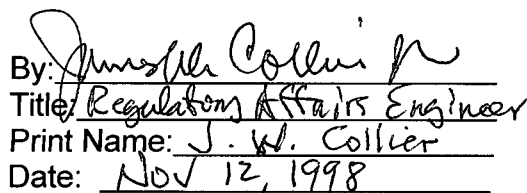 By:
Title: Regulatory Affairs Engineer
Print Name: J. W. Collier
Date: Nov 12, 1998